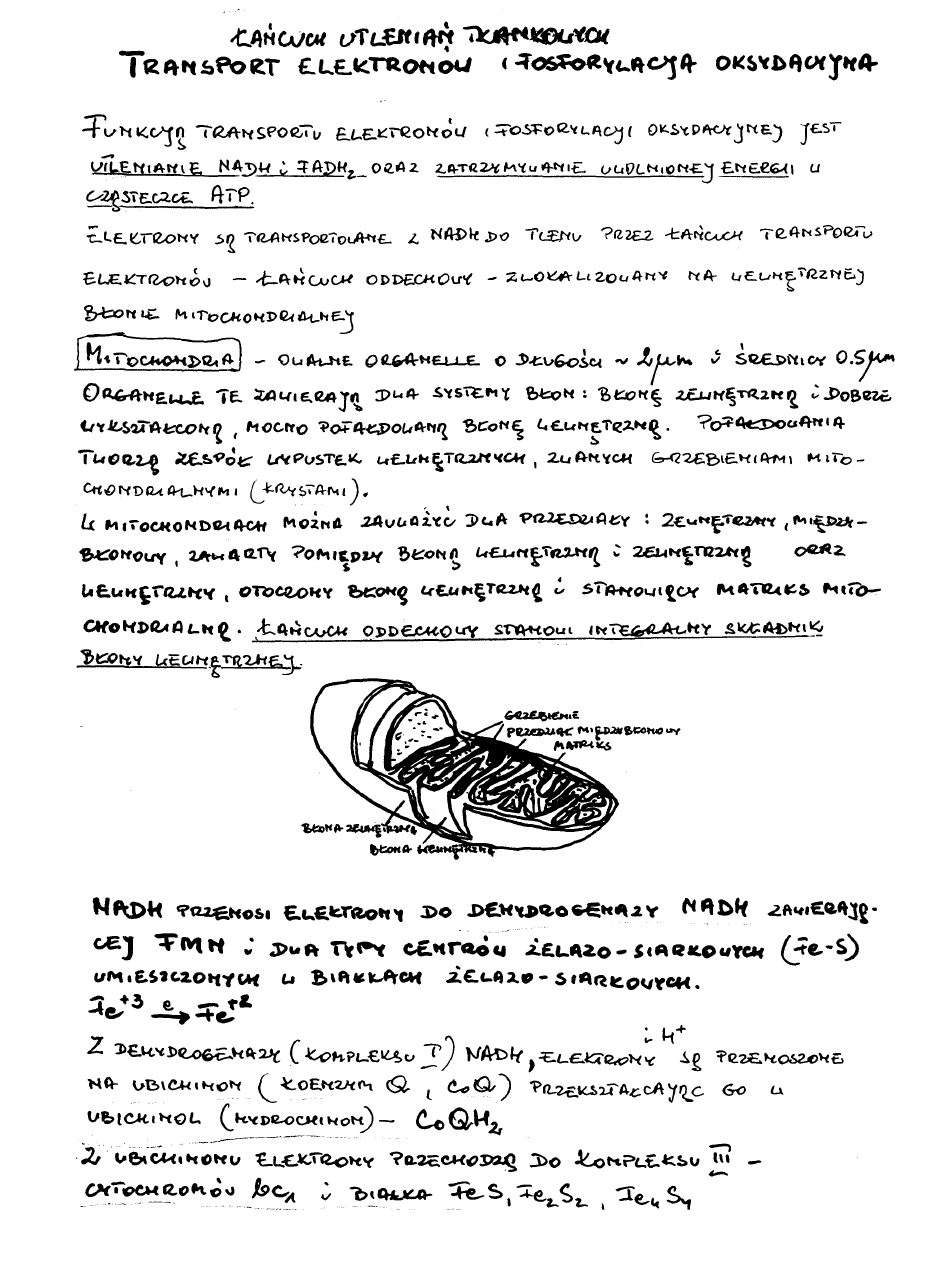 ŁAŃCUCH UTLENIAŃ TKANKOWYCH
TRANSPORT ELEKTRONÓW I FOSFORYLACJA OKSYDACYJNA
FUNKCJĄ TRANSPORTU ELEKTRONÓW I FOSFORYLACJI OKSYDACYJNEJ JEST
UTLENIANIE NADH i FADH₂ ORAZ ZATRZYMYWANIE UWOLNIONEJ ENERGII W
CZĄSTECZCE ATP.
ELEKTRONY SĄ TRANSPORTOWANE Z NADH DO TLENU PRZEZ ŁAŃCUCH TRANSPORTU
ELEKTRONÓW – ŁAŃCUCH ODDECHOWY – ZLOKALIZOWANY NA WEWNĘTRZNEJ
BŁONIE MITOCHONDRIALNEJ
MITOCHONDRIA – OWALNE ORGANELLE O DŁUGOŚCI ~ 2μm i ŚREDNICY 0.5μm
ORGANELLE TE ZAWIERAJĄ DWA SYSTEMY BŁON: BŁONĘ ZEWNĘTRZNĄ i DOBRZE
WYKSZTAŁCONĄ, MOCNO POFAŁDOWANĄ BŁONĘ WEWNĘTRZNĄ. POFAŁDOWANIA
TWORZĄ ZESPÓŁ WYPUSTEK WEWNĘTRZNYCH, ZWANYCH GRZEBIENIAMI MITO-
CHONDRIALNYMI (KRYSTAMI).
W MITOCHONDRIACH MOŻNA ZAUWAŻYĆ DWA PRZEDZIAŁY: ZEWNĘTRZNY, MIĘDZY-
BŁONOWY, ZAWARTY POMIĘDZY BŁONĄ WEWNĘTRZNĄ i ZEWNĘTRZNĄ ORAZ
WEWNĘTRZNY, OTOCZONY BŁONĄ WEWNĘTRZNĄ i STANOWIĄCY MATRIKS MITO-
CHONDRIALNĄ. ŁAŃCUCH ODDECHOWY STANOWI INTEGRALNY SKŁADNIK
BŁONY WEWNĘTRZNEJ.
GRZEBIENIE
PRZEDZIAŁ MIĘDZYBŁONOWY
MATRIKS
BŁONA ZEWNĘTRZNA
BŁONA WEWNĘTRZNA
NADH PRZENOSI ELEKTRONY DO DEHYDROGENAZY NADH ZAWIERAJĄ-
CEJ FMN i DWA TYPY CENTRÓW ŻELAZO-SIARKOWYCH (Fe-S)
UMIESZCZONYCH W BIAŁKACH ŻELAZO-SIARKOWYCH.
Fe⁺³ e→ Fe⁺²
i H⁺
Z DEHYDROGENAZY (KOMPLEKSU I) NADH, ELEKTRONY SĄ PRZENOSZONE
NA UBICHINON (KOENZYM Q, CoQ) PRZEKSZTAŁCAJĄC GO W
UBICHINOL (HYDROCHINON) – CoQH₂
Z UBICHINONU ELEKTRONY PRZECHODZĄ DO KOMPLEKSU III –
CYTOCHROMÓW bc₁ i BIAŁKA FeS, Fe₂S₂, Fe₄S₄